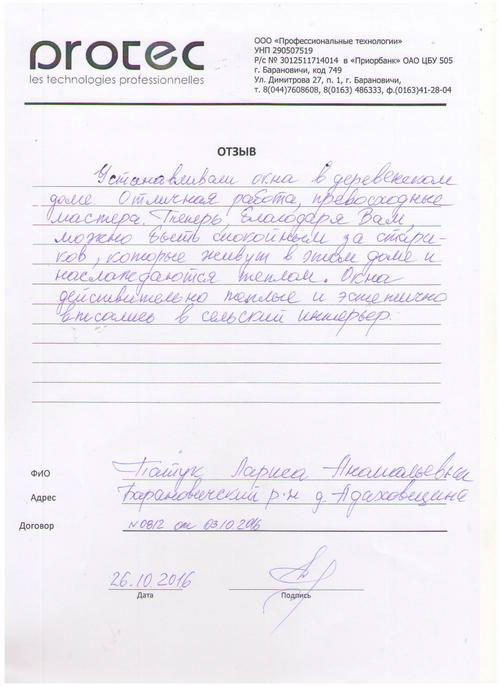 protec
les technologies professionnelles
ООО «Профессиональные технологии»
УНП 290507519
Р/с № 3012511714014 в «Приорбанк» ОАО ЦБУ 505
г. Барановичи, код 749
Ул. Димитрова 27, п. 1, г. Барановичи,
т. 8(044)7608608, 8(0163) 486333, ф.(0163)41-28-04
ОТЗЫВ
Устанавливали окна в деревенском
доме Отличная работа, превосходные
мастера. Теперь, благодаря Вам,
можно быть спокойным за стари-
ков, которые живут в этом доме и
наслаждаются теплом. Окна
действительно теплые и эстетично
вписались в сельский интерьер.
ФИО Татук Лариса Анатольевна
Адрес Барановичский р-н д. Адаховщина
Договор N 0812 от 03.10.2016
26.10.2016
Дата
Подпись